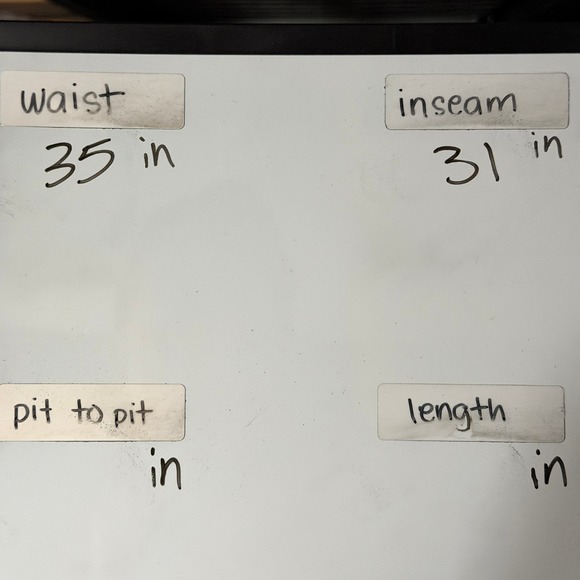 waist
35 in
inseam
31 in
pit to pit
in
length
in